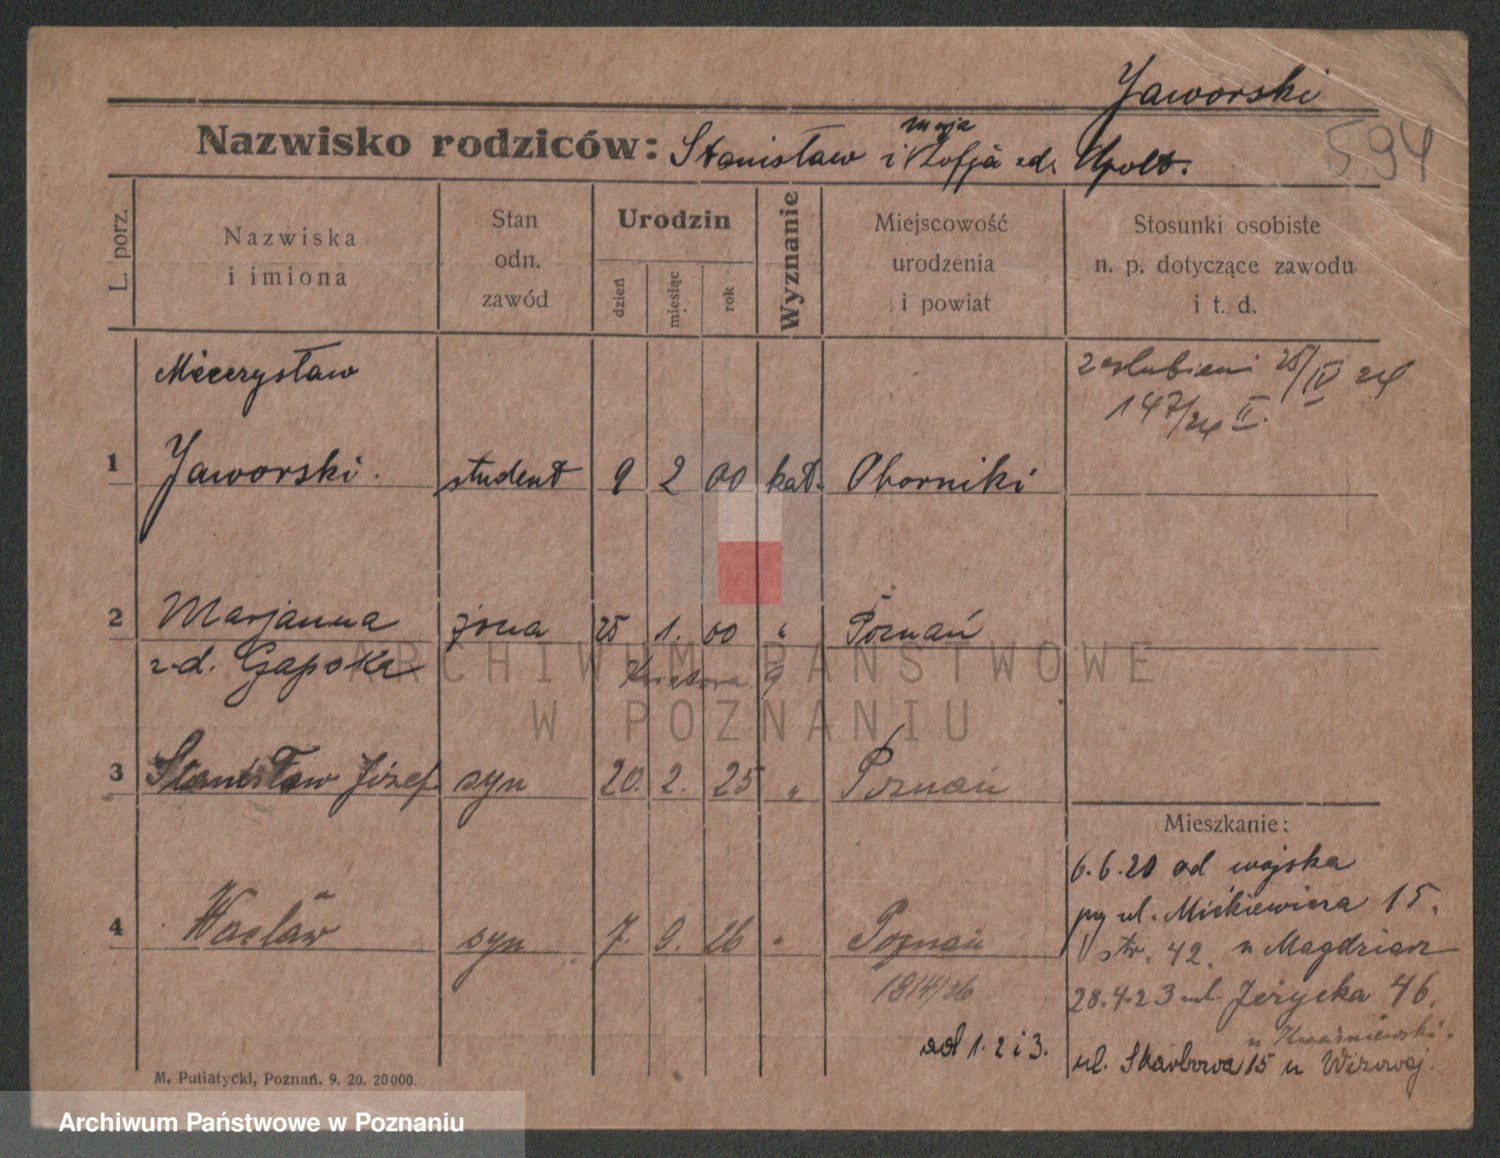 Jaworski
594
moja
Nazwisko rodziców: Stanisław i Zofja zd.
L. porz.
Nazwiska i imiona
Stan odn. zawód
Urodzin
dzień
miesiąc
rok
Wyznanie
Miejscowość urodzenia i powiat
Stosunki osobiste n. p. dotyczące zawodu i t. d.
Mieczysław
zaślubieni 25/IV 24
147/24 II.
1 Jaworski. student 9 2 00 kat. Oborniki
2 Marjanna żona 25 1. 00 " Poznań
z-d. Gapska
3 Stanisław Józef syn 20. 2. 25 " Poznań
Mieszkanie:
6.6.20 od wojska
przy ul. Mickiewicza 15.
4 Wacław syn 7. 9. 26 " Poznań
str. 42. u Magdziarz
1814/26
28.4.23 ul. Jeżycka 46.
u Kwaśniewski.
ad 1. 2 i 3.
ul. Skarbowa 15 u
M. Putiatycki, Poznań. 9. 20. 20000.
ARCHIWUM PAŃSTWOWE
W POZNANIU
Archiwum Państwowe w Poznaniu